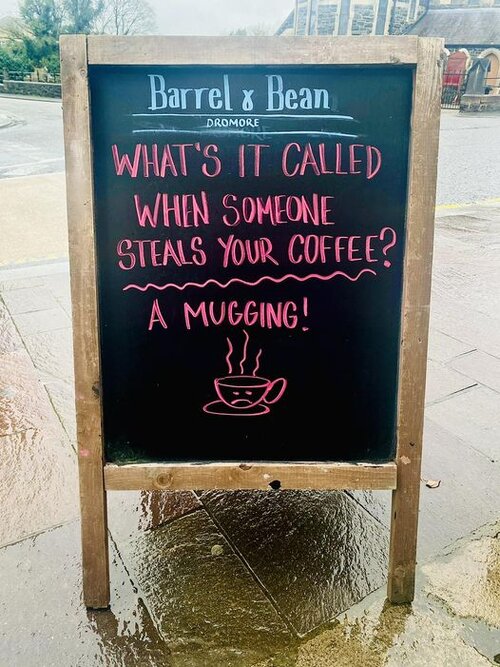 Barrel & Bean
DROMORE
WHAT'S IT CALLED
WHEN SOMEONE
STEALS YOUR COFFEE?
A MUGGING!